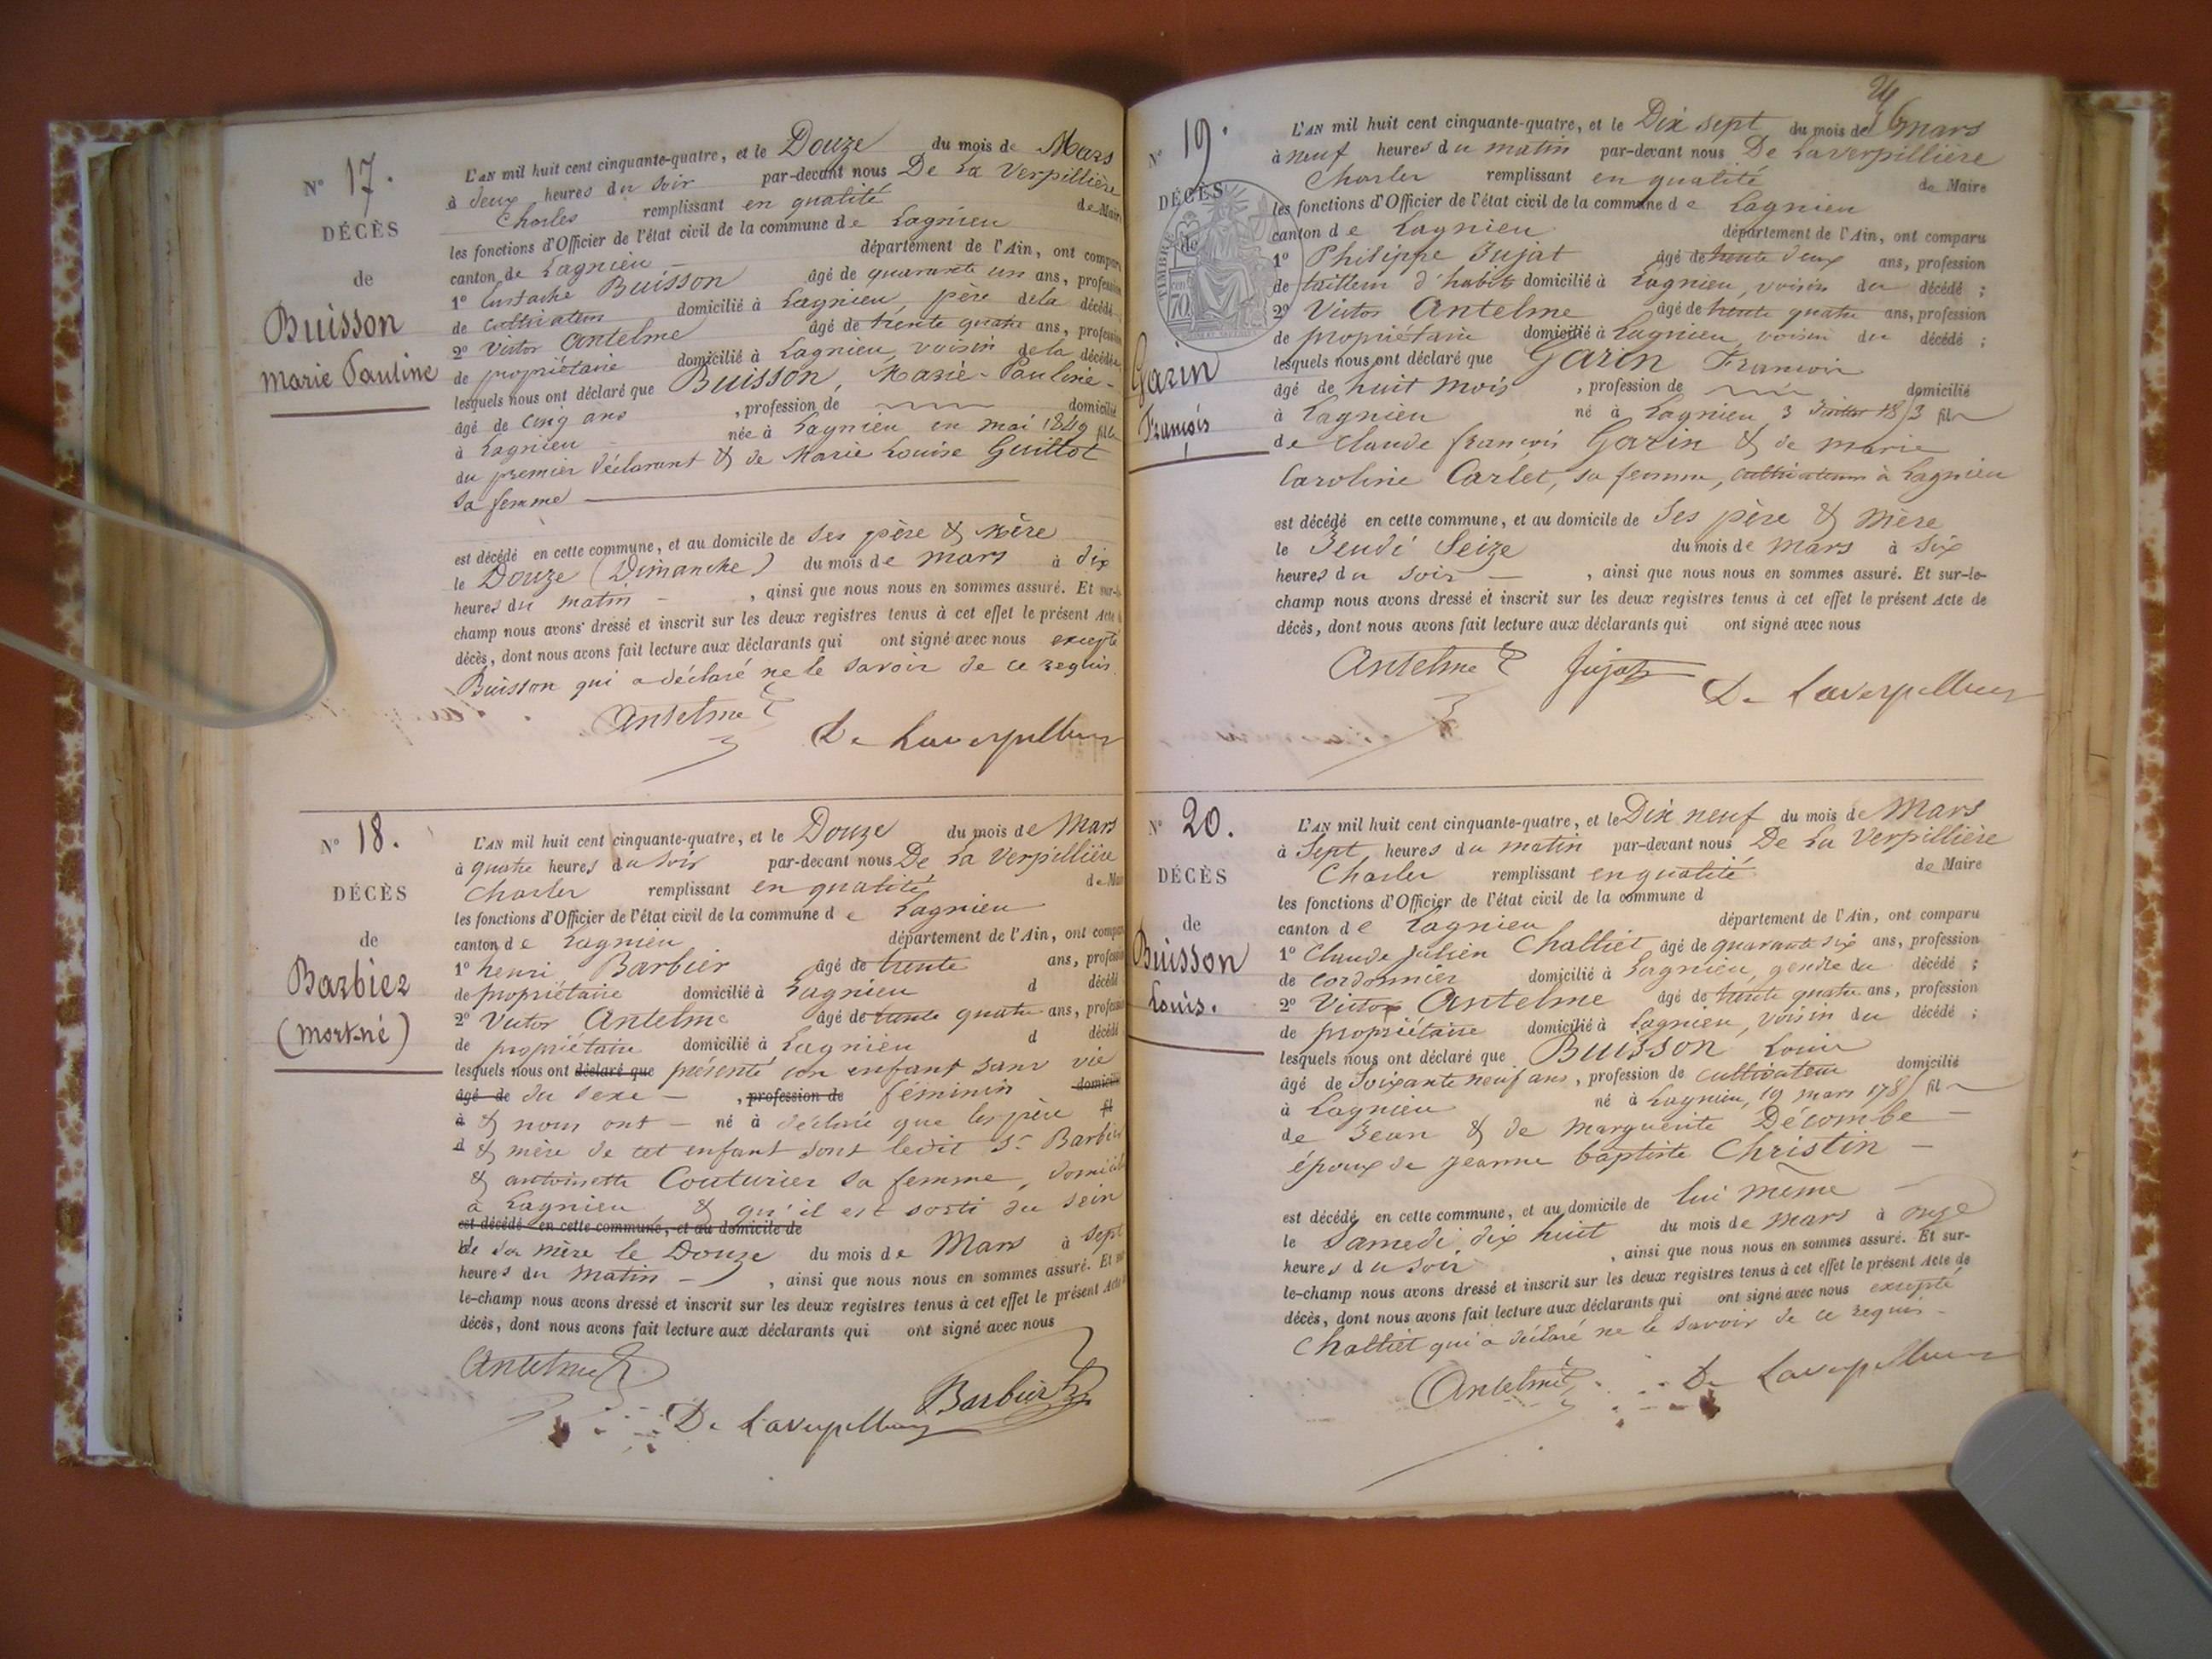 N° 17.
DÉCÈS
de
Buisson
Marie Pauline
L'AN mil huit cent cinquante-quatre, et le Douze du mois de Mars
à deux heures du soir par-devant nous De La Verpillière
Charles remplissant en qualité de Maire
les fonctions d'Officier de l'état civil de la commune de Lagnieu
canton de Lagnieu département de l'Ain, ont comparu
1° Eustache Buisson âgé de quarante un ans, profession
de cultivateur domicilié à Lagnieu, père de la décédée
2° Victor Antelme âgé de trente quatre ans, profession
de propriétaire domicilié à Lagnieu, voisin de la décédée
lesquels nous ont déclaré que Buisson, Marie-Pauline
âgé de cinq ans, profession de domicilié
à Lagnieu née à Lagnieu en mai 1849 fille
du premier déclarant & de Marie Louise Guillot
sa femme
est décédé en cette commune, et au domicile de ses père & mère
le Douze (Dimanche) du mois de mars à dix
heures du matin, ainsi que nous nous en sommes assuré. Et sur-le-
champ nous avons dressé et inscrit sur les deux registres tenus à cet effet le présent Acte de
décès, dont nous avons fait lecture aux déclarants qui ont signé avec nous excepté
Buisson qui a déclaré ne le savoir de ce requis.
Antelme
De Laverpilliere
N° 18.
DÉCÈS
de
Barbier
(mort-né)
L'AN mil huit cent cinquante-quatre, et le Douze du mois de Mars
à quatre heures du soir par-devant nous De La Verpillière
Charles remplissant en qualité de Maire
les fonctions d'Officier de l'état civil de la commune de Lagnieu
canton de Lagnieu département de l'Ain, ont comparu
1° henri Barbier âgé de trente ans, profession
de propriétaire domicilié à Lagnieu d décédé
2° Victor Antelme âgé de trente quatre ans, profession
de propriétaire domicilié à Lagnieu d décédé
lesquels nous ont déclaré que présenté un enfant sans vie
âgé de du sexe, profession de féminin domicilié
à & nous ont né à déclaré que les père fil
d & mère de cet enfant sont ledit Sr Barbier
& antoinette Couturier sa femme, domiciliés
à Lagnieu & qu'il est sorti du sein
est décédé en cette commune, et au domicile de
de sa mère le Douze du mois de Mars à sept
heures du matin, ainsi que nous nous en sommes assuré. Et sur-
le-champ nous avons dressé et inscrit sur les deux registres tenus à cet effet le présent Acte de
décès, dont nous avons fait lecture aux déclarants qui ont signé avec nous
Antelme
Barbier
De Laverpilliere
N° 19.
DÉCÈS
de
TIMBRE
70
Garin
François
L'AN mil huit cent cinquante-quatre, et le Dix sept du mois de mars
à neuf heures du matin par-devant nous De Laverpillière
Charles remplissant en qualité de Maire
les fonctions d'Officier de l'état civil de la commune de Lagnieu
canton de Lagnieu département de l'Ain, ont comparu
1° Philippe Jujat âgé de trente deux ans, profession
de tailleur d'habits domicilié à Lagnieu, voisin du décédé ;
2° Victor Antelme âgé de trente quatre ans, profession
de propriétaire domicilié à Lagnieu, voisin du décédé ;
lesquels nous ont déclaré que Garin François
âgé de huit mois, profession de domicilié
à Lagnieu né à Lagnieu 3 Juillet 1853 fils
de Claude françois Garin & de marie
Caroline Carlet, sa femme, cultivateurs à Lagnieu
est décédé en cette commune, et au domicile de ses père & mère
le Jeudi Seize du mois de mars à six
heures du soir, ainsi que nous nous en sommes assuré. Et sur-le-
champ nous avons dressé et inscrit sur les deux registres tenus à cet effet le présent Acte de
décès, dont nous avons fait lecture aux déclarants qui ont signé avec nous
Antelme Jujat
De Laverpilliere
N° 20.
DÉCÈS
de
Buisson
Louis.
L'AN mil huit cent cinquante-quatre, et le Dix neuf du mois de Mars
à Sept heures du matin par-devant nous De La Verpillière
Charles remplissant en qualité de Maire
les fonctions d'Officier de l'état civil de la commune d
canton de Lagnieu département de l'Ain, ont comparu
1° Claude Julien Chattiet âgé de quarante six ans, profession
de cordonnier domicilié à Lagnieu, gendre du décédé ;
2° Victor Antelme âgé de trente quatre ans, profession
de propriétaire domicilié à Lagnieu, voisin du décédé ;
lesquels nous ont déclaré que Buisson Louis
âgé de Soixante neuf ans, profession de cultivateur domicilié
à Lagnieu né à Lagnieu, 19 mars 1785 fils
de Jean & de Marguerite Décombe
époux de Jeanne baptiste Christin
est décédé en cette commune, et au domicile de lui même
le Samedi dix huit du mois de mars à onze
heures du soir, ainsi que nous nous en sommes assuré. Et sur-
le-champ nous avons dressé et inscrit sur les deux registres tenus à cet effet le présent Acte de
décès, dont nous avons fait lecture aux déclarants qui ont signé avec nous excepté
Chattiet qui a déclaré ne le savoir de ce requis
Antelme
De Laverpilliere